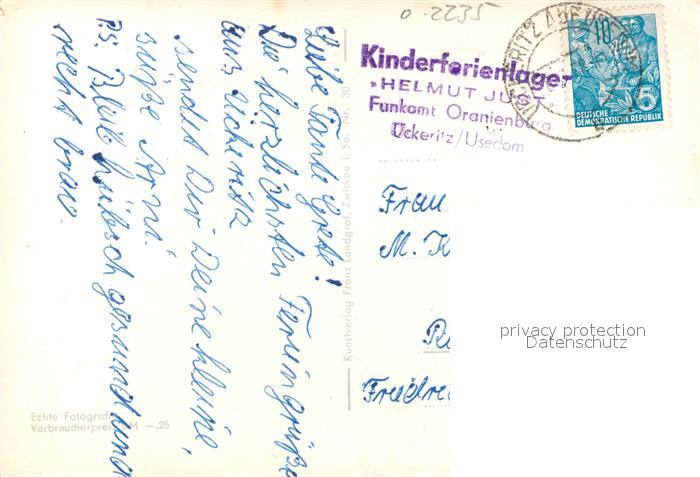 Liebe Tante Grete!
Die herzlichsten Feriengrüße
aus Ückeritz
sendet Dir Deine kleine,
süße Arni.
P.S. Bleib hübsch gesund und
recht brav.
Echte Fotografie
Verbraucherpreis M —.25
Kunstverlag Franz Landgraf, Zwickau i. Sa. Nr. 30
o 2225
Kinderferienlager
"HELMUT JUST"
Funkamt Oranienburg
Ückeritz/Usedom
10
5
DEUTSCHE
DEMOKRATISCHE REPUBLIK
Frau
M. K
Fried
privacy protection
Datenschutz